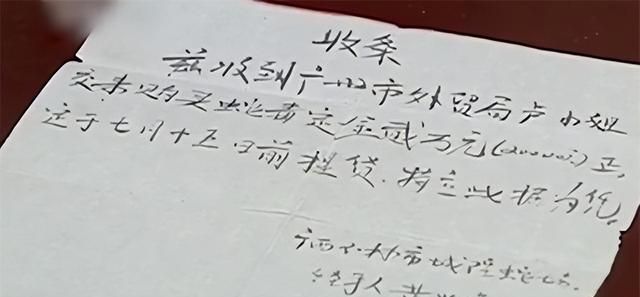 收条
兹收到广州市外贸局卢小姐
交来购买蛇苗定金贰万元(20000元)正,
定于七月十五日前提货.特立此据为凭.
广西桂林市城隍蛇场.
经手人黄